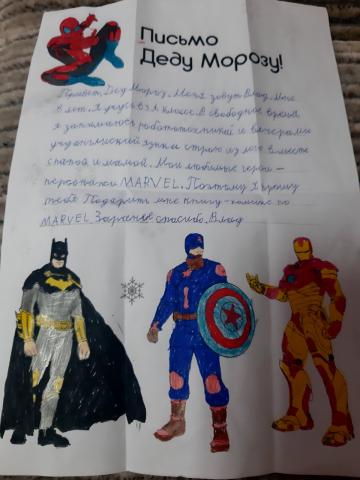 Письмо
Деду Морозу!
Привет, Дед Мороз. Меня зовут Влад. Мне
8 лет. Я учусь в 2 классе. В свободное время
я занимаюсь робототехникой и вечерами
учу английский язык и строю из лего вместе
с папой и мамой. Мои любимые герои -
персонажи MARVEL. Поэтому я прошу
тебя Подарить мне книгу-комикс по
MARVEL. Заранее спасибо. Влад